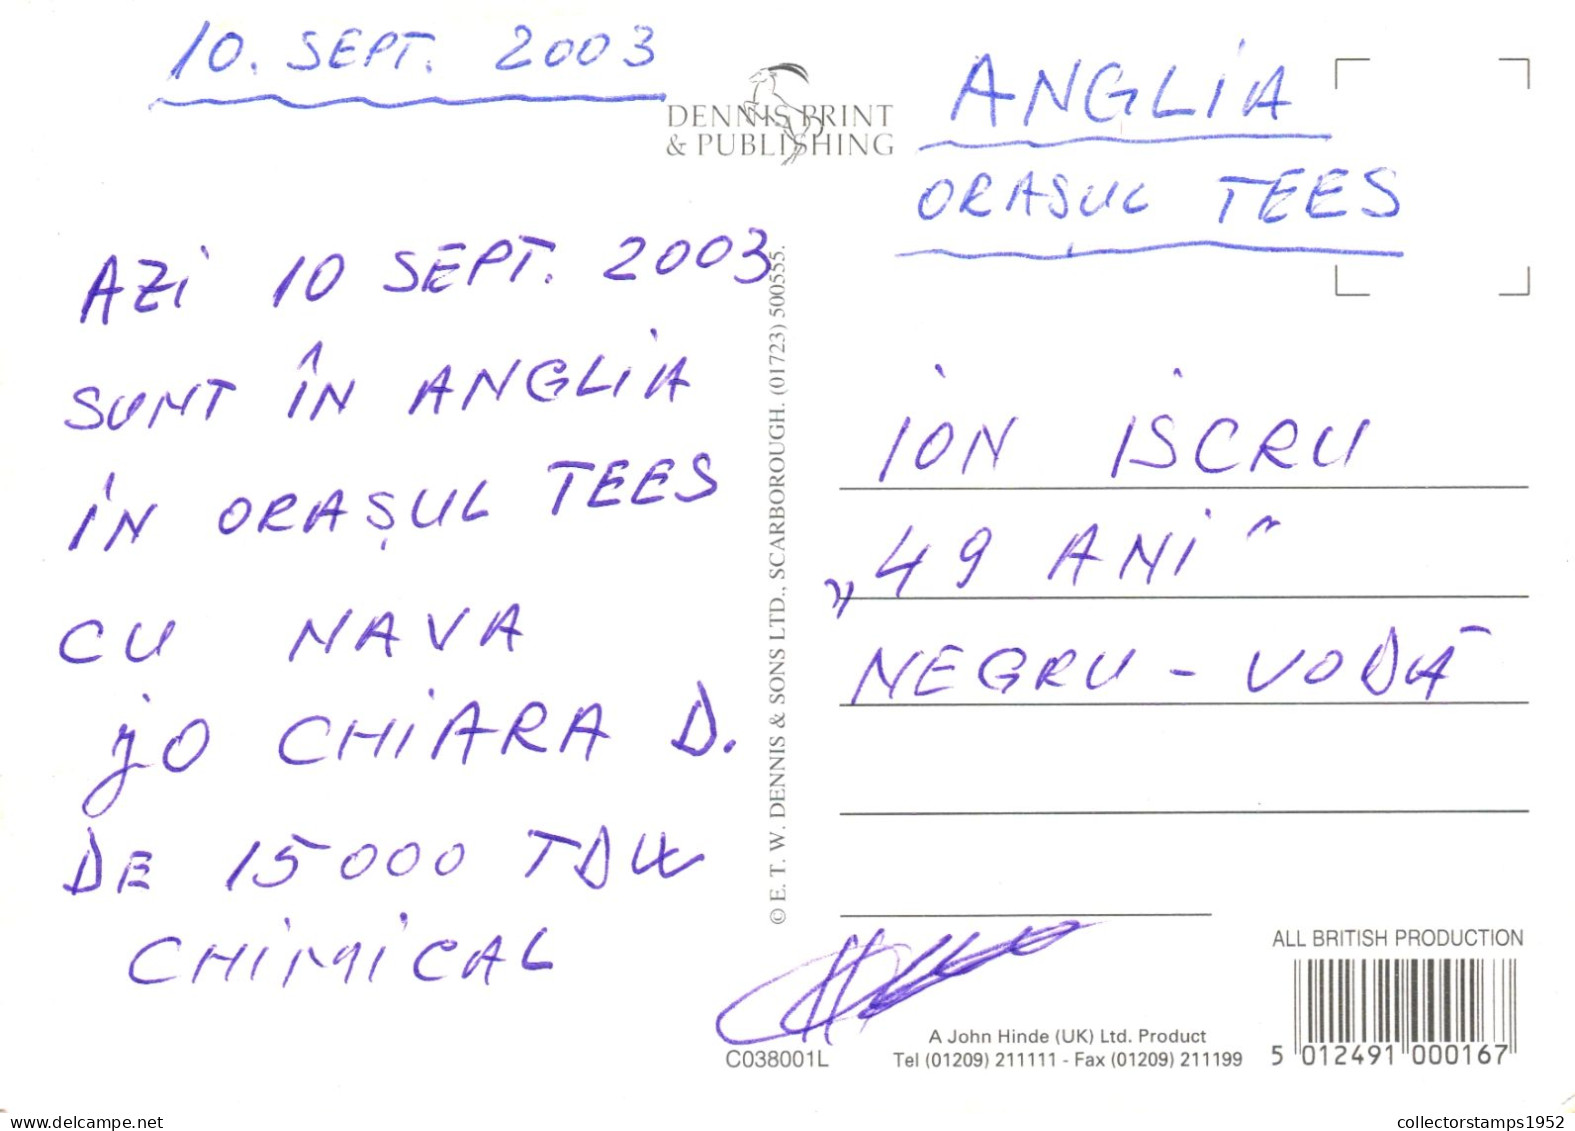 10. SEPT. 2003
DENNIS PRINT
& PUBLISHING
ANGLiA
ORASUL TEES
AZi 10 SEPT. 2003
SUNT ÎN ANGLiA
iN ORAȘUL TEES
CU NAVA
jO CHiARA D.
DE 15000 TDW
CHiMiCAL
© E. T. W. DENNIS & SONS LTD., SCARBOROUGH. (01723) 500555.
iON iSCRU
„49 ANi"
NEGRU - VODĂ
ALL BRITISH PRODUCTION
A John Hinde (UK) Ltd. Product
C038001L
Tel (01209) 211111 - Fax (01209) 211199
5 012491 000167
collectorstamps1952